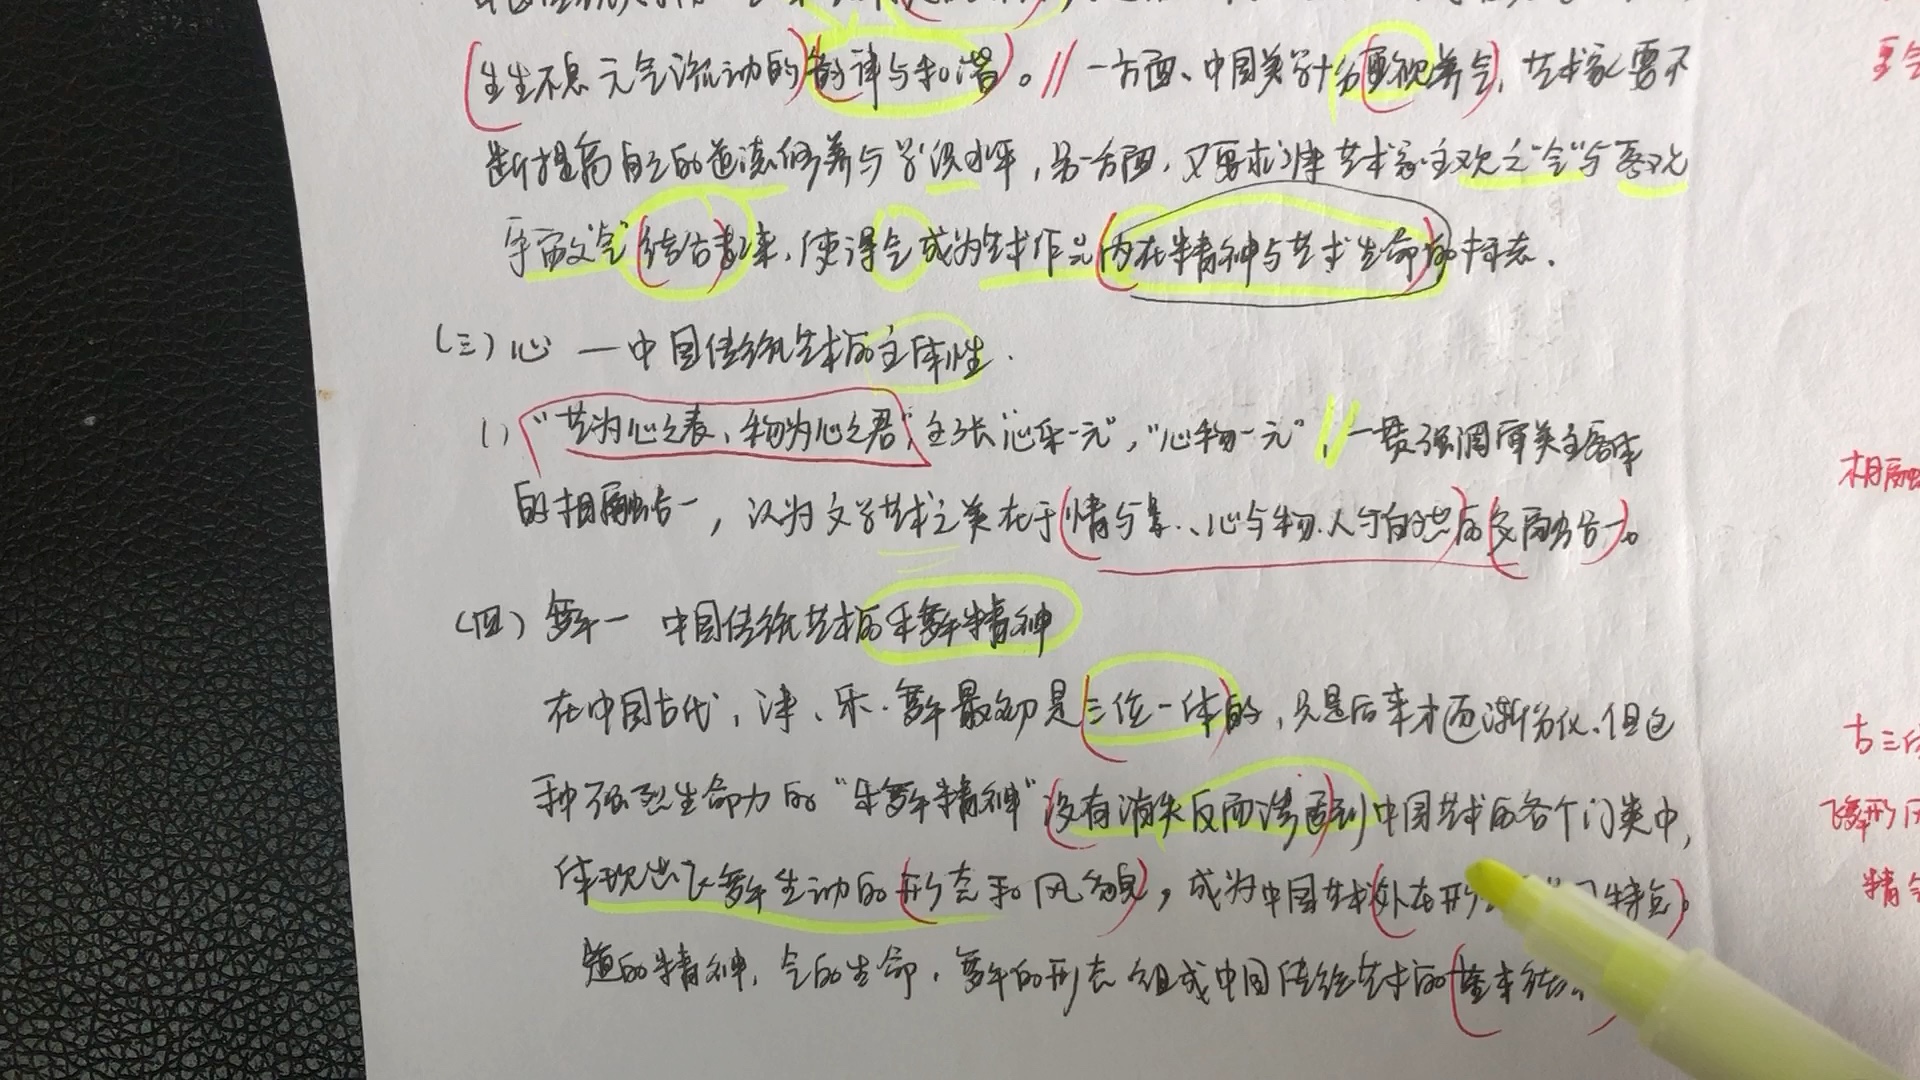 生生不息元气流动的韵律与和谐。//一方面、中国美学十分重视养气,艺术家要不
断提高自己的道德修养与学识水平,另一方面,又要求将艺术家主观之"气"与客观
宇宙之"气"结合起来,使得气成为艺术作品内在精神与艺术生命的标志.
(三)心—中国传统艺术的主体性.
(1)"艺为心之表、物为心之君",主张"心乐一元","心物一元",一贯强调审美主客体
的相融合一,认为文学艺术之美在于情与景、心与物、人与自然的交融合一。
(四)舞—中国传统艺术的乐舞精神
在中国古代,诗、乐、舞最初是三位一体的,只是后来才逐渐分化.但这
种强烈生命力的"乐舞精神"没有消失反而渗透到中国艺术的各个门类中,
体现出飞舞生动的形态和风貌,成为中国艺术外在形 特点。
道的精神,气的生命,舞的形态组成中国传统艺术的基本结
至气
相融
古三位
飞舞形风
精气